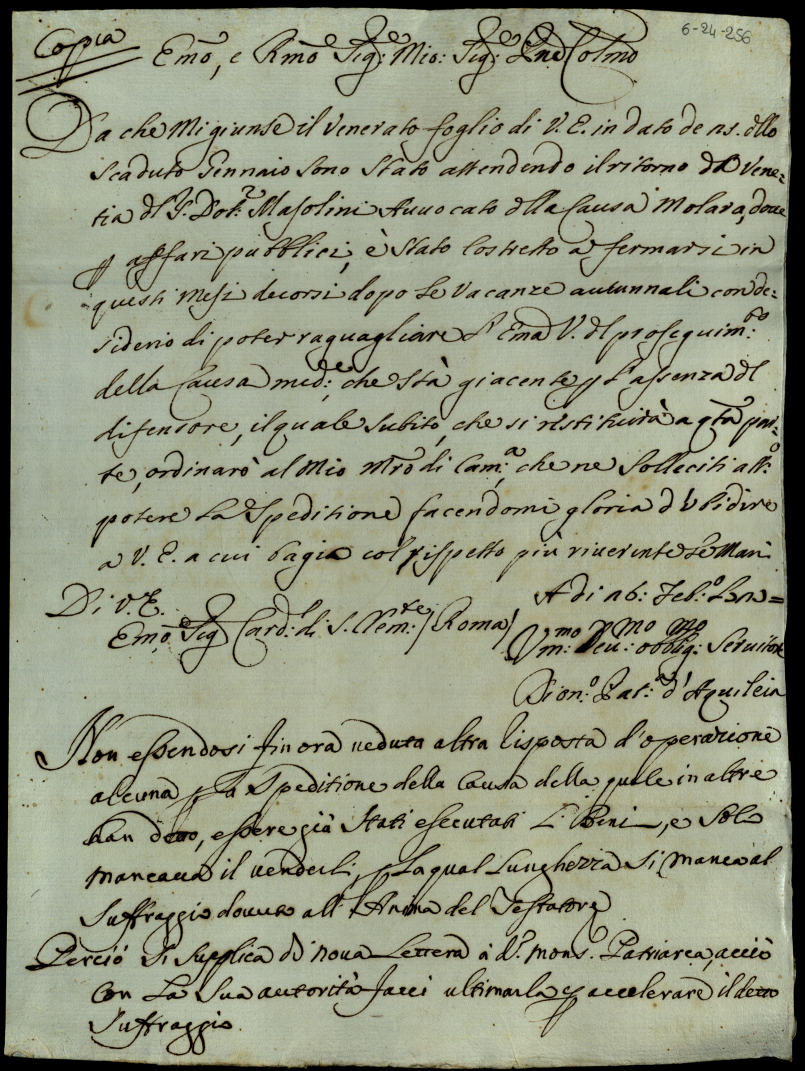 6-24-256
Copia
Emo, e Rmo Sig.re Mio: Sig.re Pne Colmo
Da che Mi giunse il Venerato foglio di V. E. in dato de 25. dllo
scaduto Gennaio sono stato attendendo il ritorno da Vene=
tia dl S. Dot.r Masolini Auuocato dlla Causa Molara, doue
p affari pubblici, è stato costretto a fermarsi in
questi Mesi decorsi dopo le Vacanze autunnali con de=
siderio di poter raguagliare l'Ema V. dl proseguim.to
della Causa med.e, che stà giacente p l'assenza dl
difensore, il quale subito, che si restituirà a qta par=
te, ordinarò al Mio Mro di Cam.a che ne solleciti all.o
potere la speditione facendomi gloria d'Vbidire
a V. E. a cui bagio col rispetto più riuerente le Mani
Di V. E. Adi 26: Feb.o
Emo Sig Card.l di S. Clem.te / Roma / Vm.mo Deu.mo obblig.mo Seruitore
Dion.o Pat.a d'Aquileia
Non essendosi fin ora ueduta altra risposta d'operazione
alcuna p la speditione della Causa della quale in altre
han detto, essere già stati essecutati li Beni, e solo
mancaua il uenderli, p la qual lunghezza si manca al
suffraggio douuto all'Anima del Testatore
Perciò si supplica di noua lettera à d.o mons.e Patriarca, acciò
con la sua autorità facci ultimarla p accelerare il detto
suffraggio.